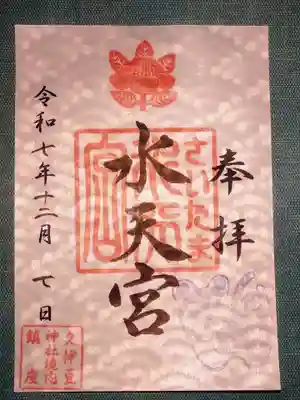 奉拝
さいたま
水天宮
令和七年十二月 日
久伊豆
神社境内
鎮座